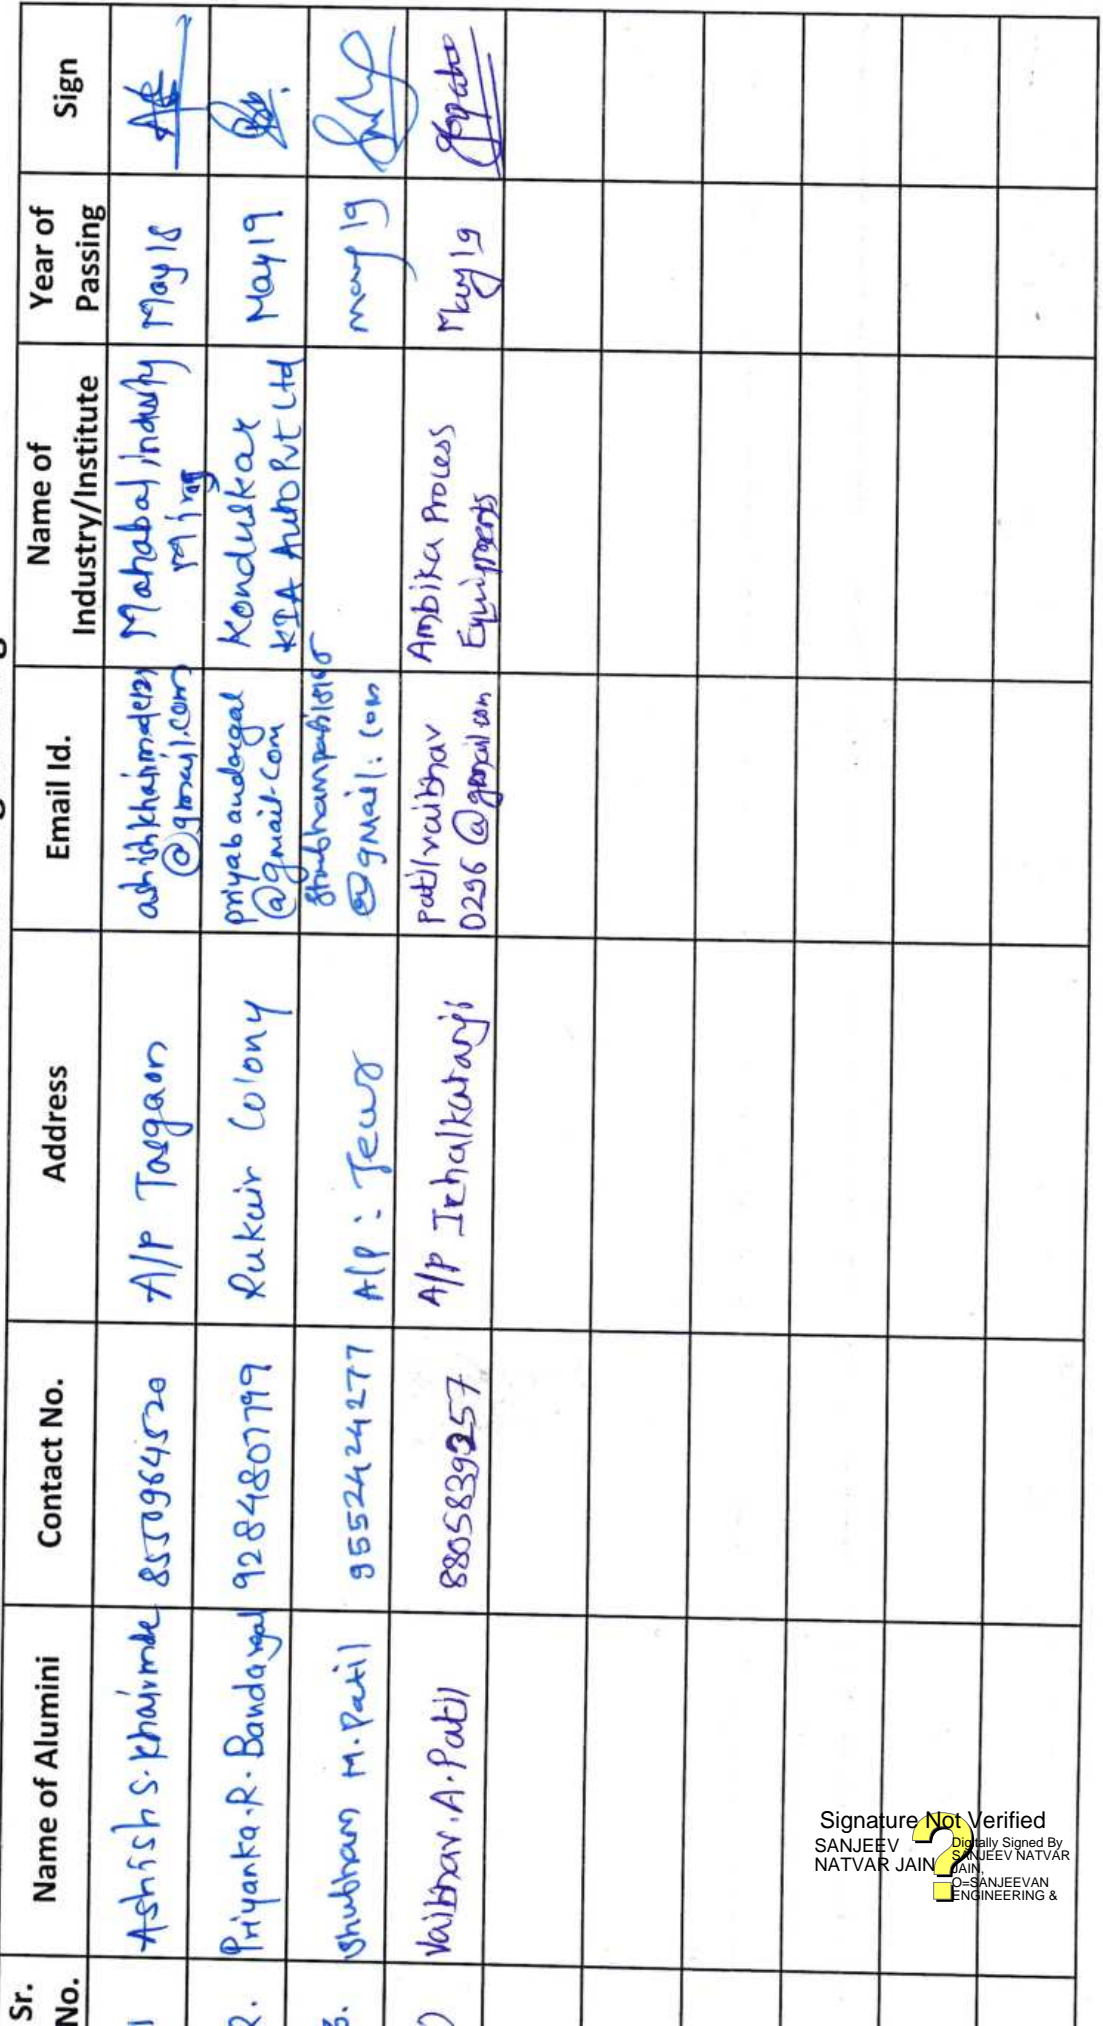 Sr. No. Name of Alumini Contact No. Address Email Id. Name of Industry/Institute Year of Passing Sign
1 Ashish S. Khairmde 8550964520 A/P Tasgaon @gmail.com Mahabal industry Miraj May 18
2. Priyanka.R.Bandargal 9284807799 Rukuir Colony priyabandargal @gmail.com Konduskar KIA Auto Pvt Ltd May19
3. Shubham M.Patil 9552424277 A/p: Teur @gmail.com may 19
Vaibhav.A.Patil 8805839257 A/P Ichalkaranji patilvaibhav 0296@gmail.com Ambika Process Equipments May19
Signature Not Verified
SANJEEV
NATVAR JAIN
Digitally Signed By
SANJEEV NATVAR
JAIN,
O=SANJEEVAN
ENGINEERING &